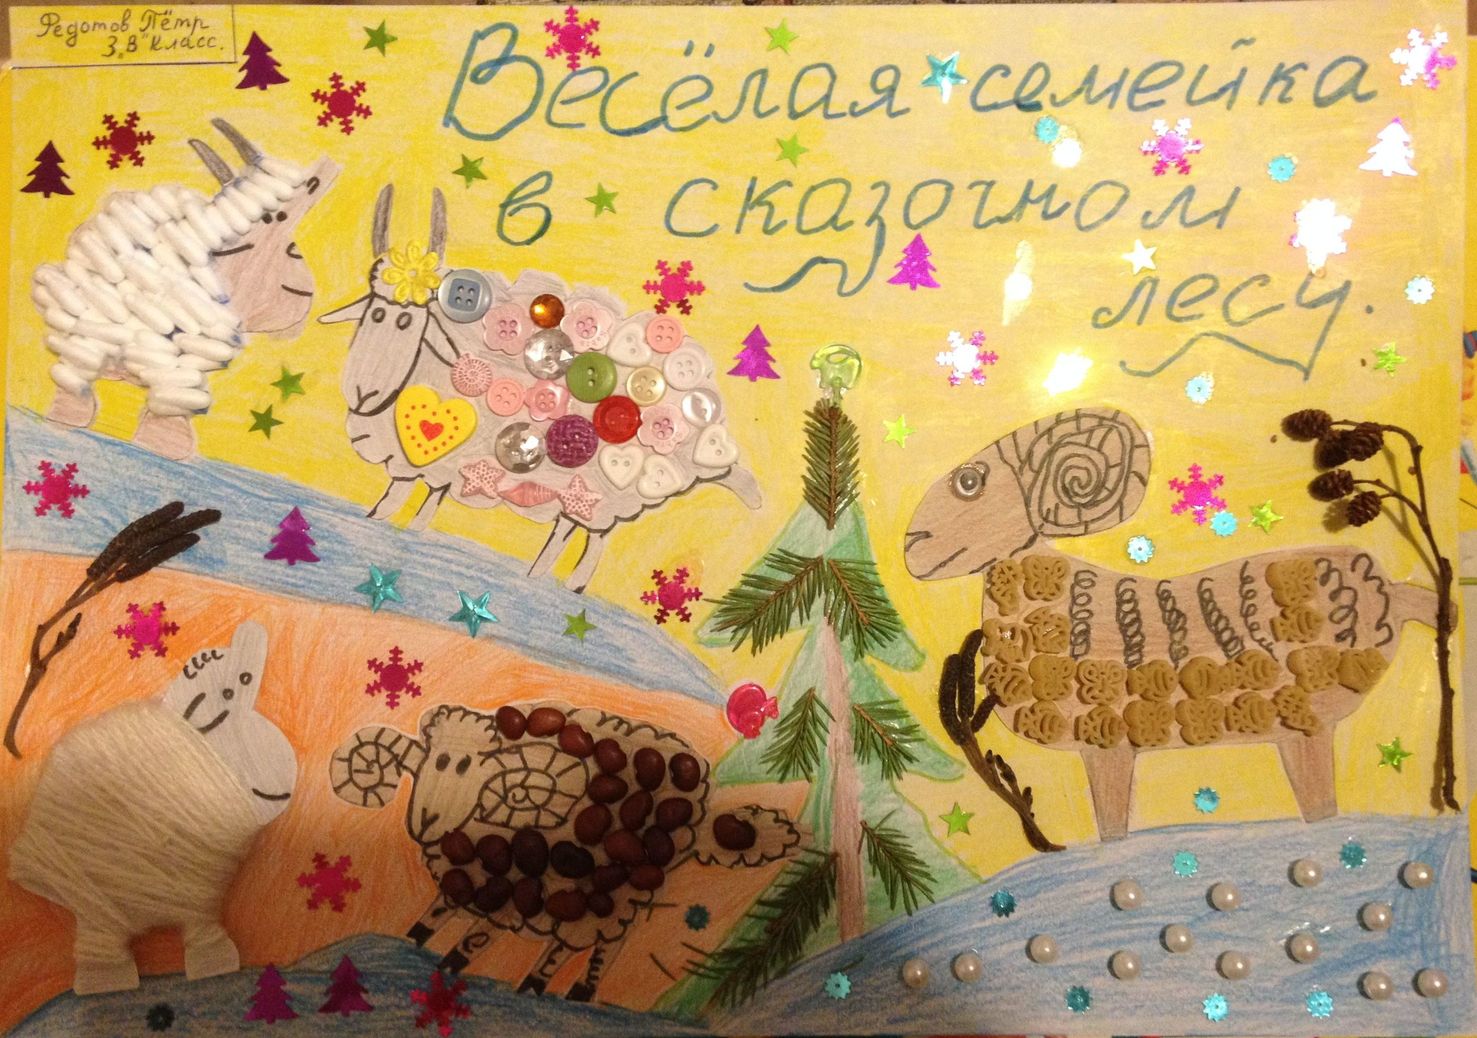 Федотов Пётр
3 „В" класс.
Весёлая семейка
в сказочном
лесу.